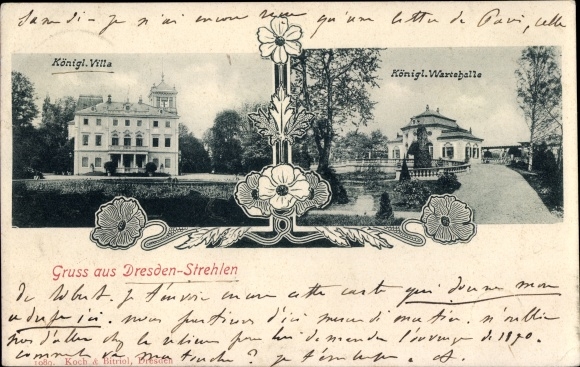 Samedi - je n'ai encore reçu qu'une lettre de Paris, celle
Königl. Villa
Königl. Wartehalle
Gruss aus Dresden-Strehlen
de Robert. je t'envoie encore cette carte qui donne mon
adresse ici. nous partirons d'ici mercredi matin. n'oublie
pas d'aller chez le relieur pour lui demander l'ouvrage de 1870.
comment va ma ? je t'embrasse.
1089. Koch & Bitriol, Dresden